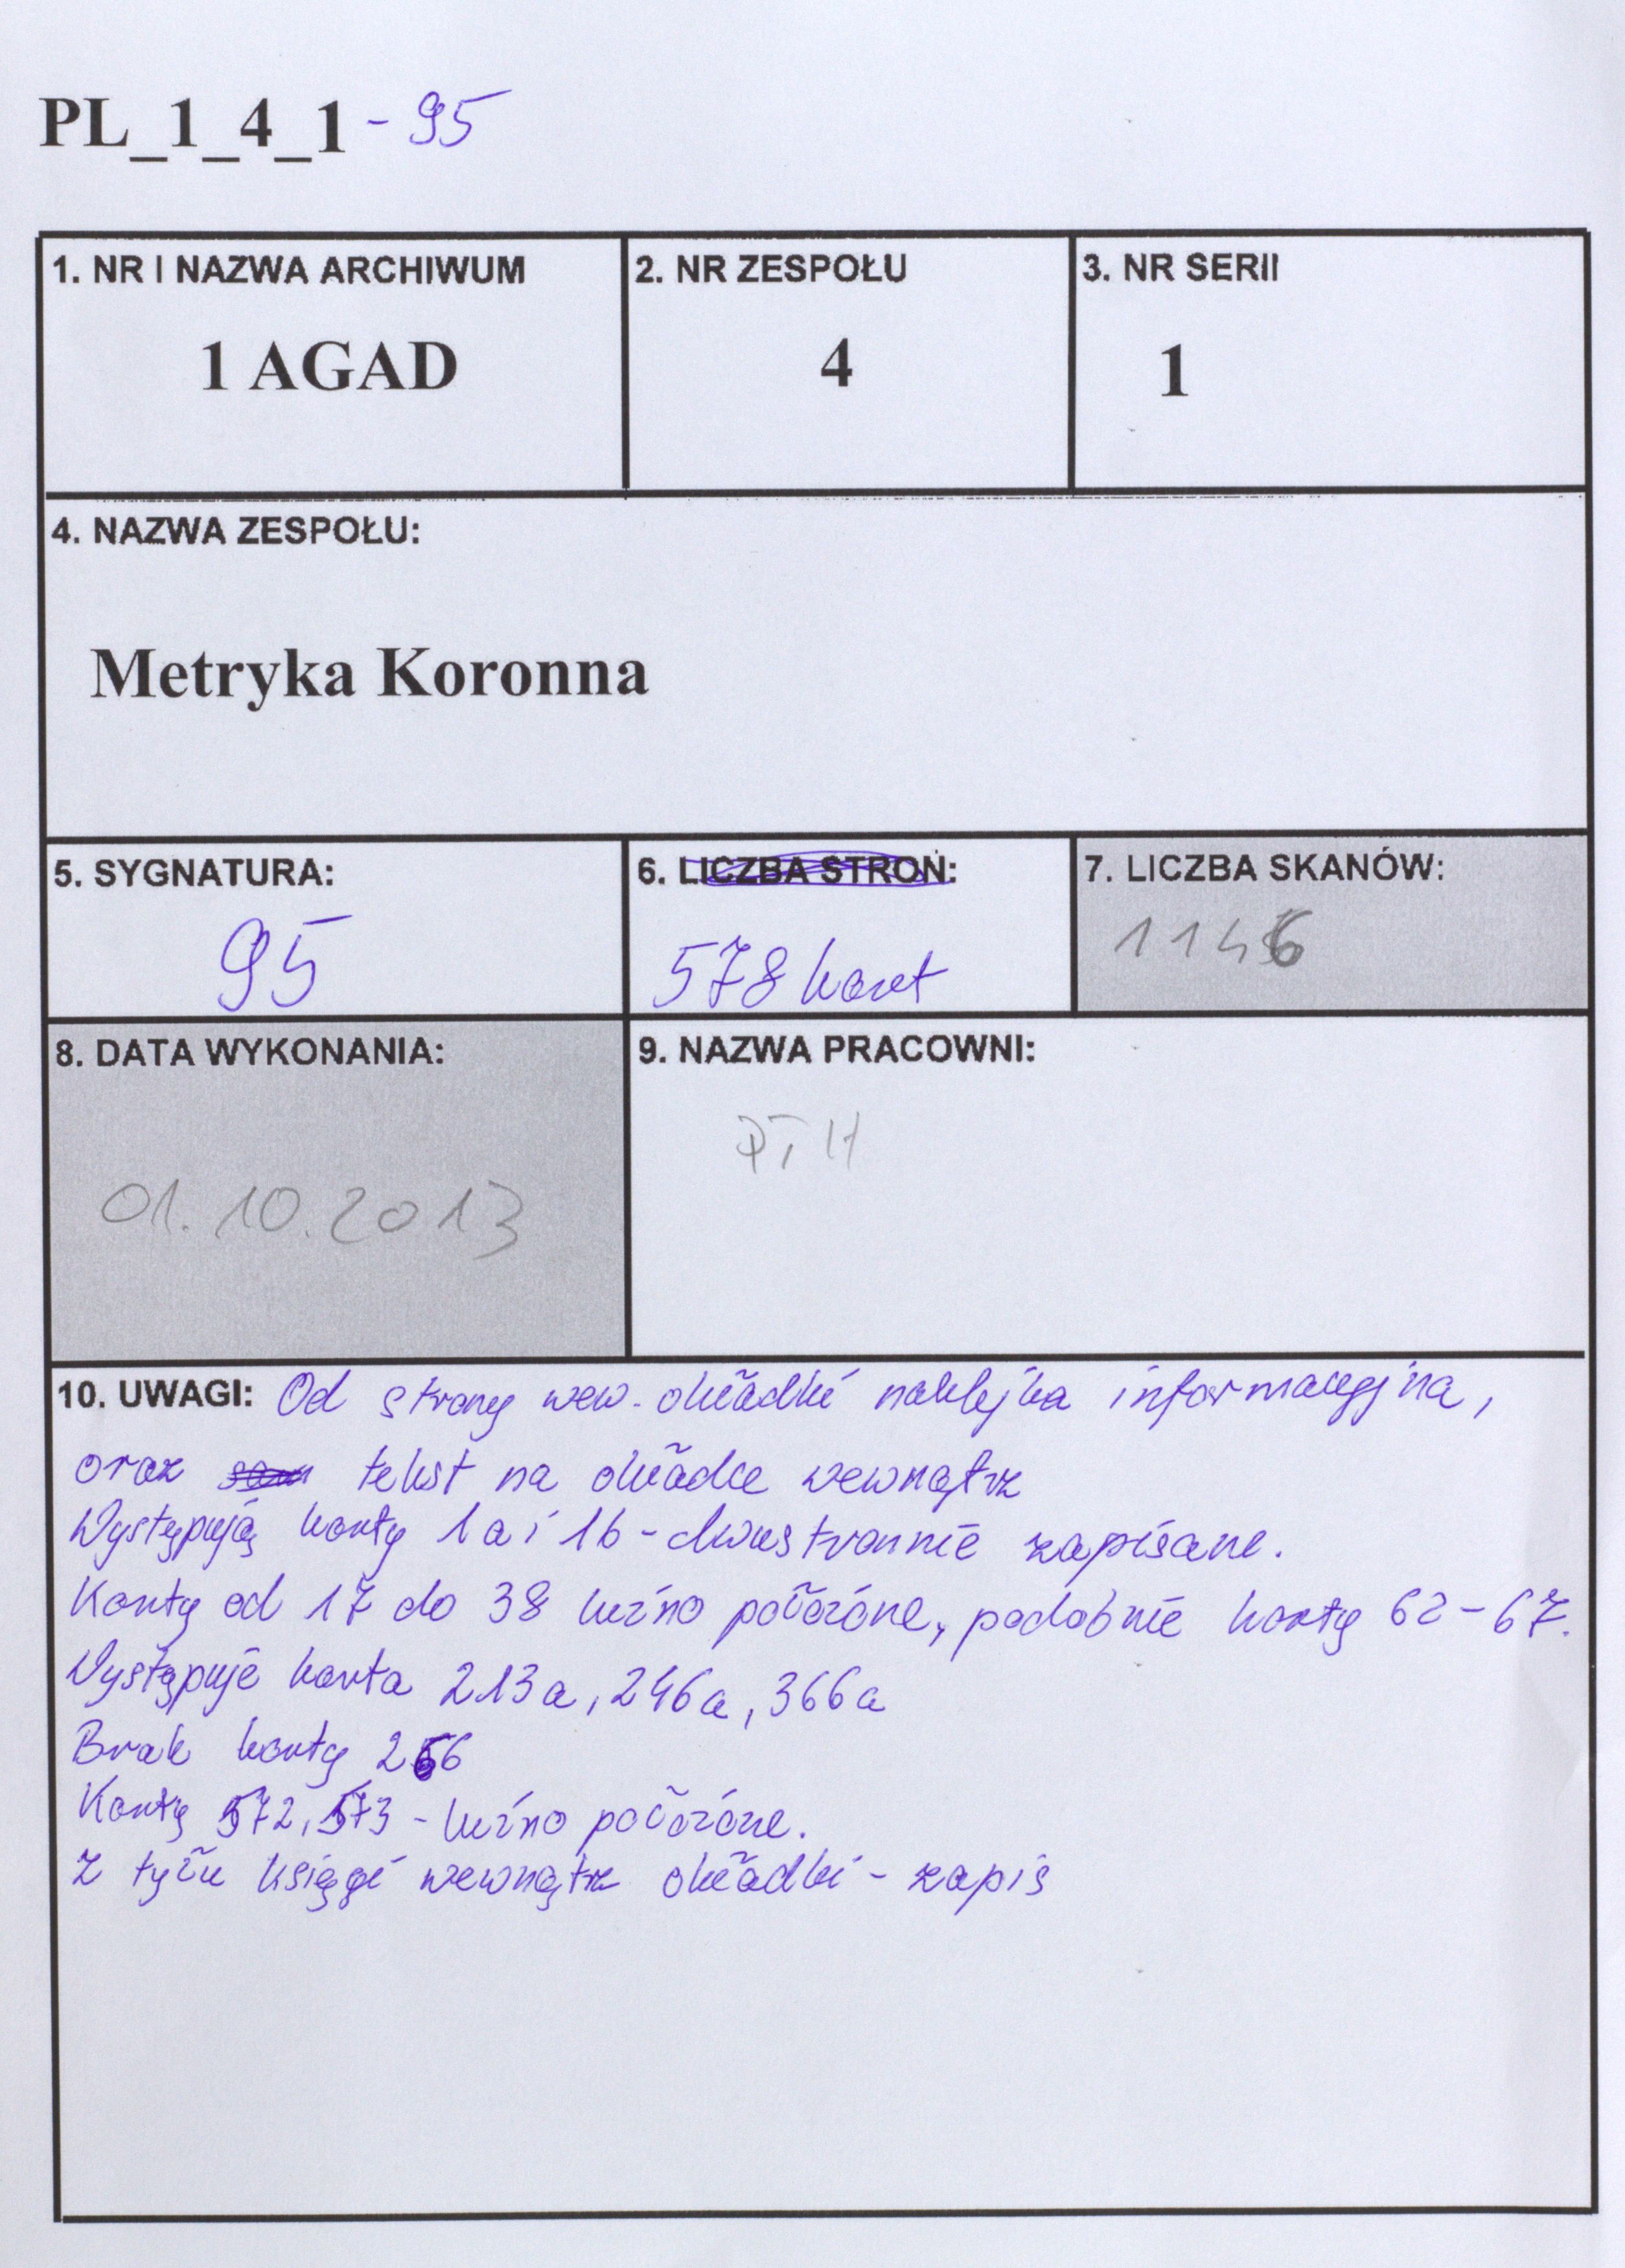 PL_1_4_1 - 95
1. NR I NAZWA ARCHIWUM
1 AGAD
2. NR ZESPOŁU
4
3. NR SERII
1
4. NAZWA ZESPOŁU:
Metryka Koronna
5. SYGNATURA:
95
6. LICZBA STRON:
578 kart
7. LICZBA SKANÓW:
1146
8. DATA WYKONANIA:
01.10.2013
9. NAZWA PRACOWNI:
10. UWAGI: Od strony wew. okładki naklejka informacyjna,
oraz tekst na okładce wewnątrz
Występują karty 1a i 1b - dwustronnie zapisane.
Karty od 17 do 38 luźno położone, podobnie karty 62-67.
Występuje karta 213a, 246a, 366a
Brak karty 266
Karty 572, 573 - luźno położone.
Z tyłu księgi wewnątrz okładki - zapis